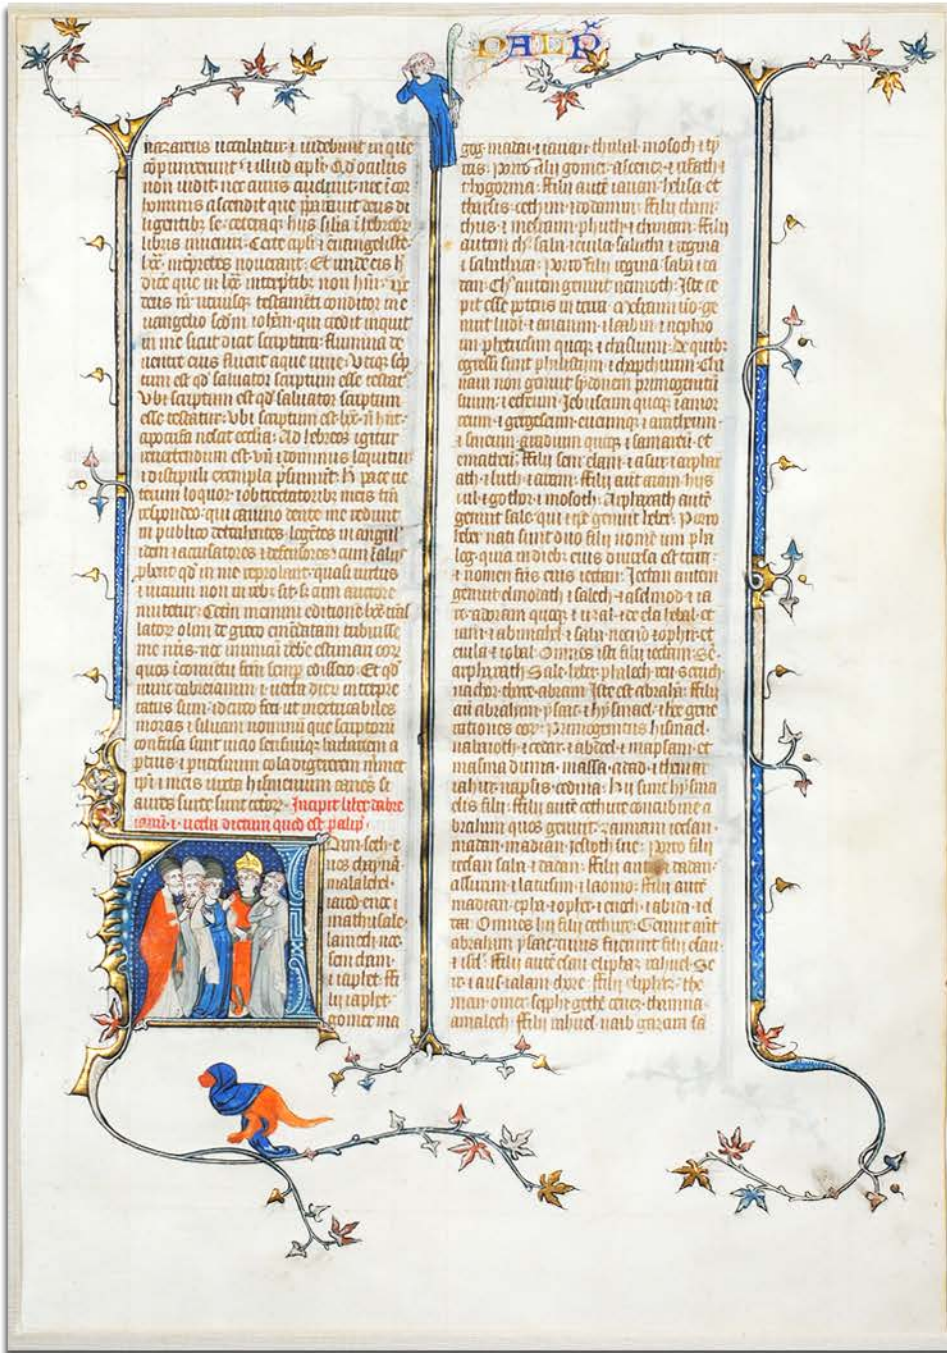 PALIP
nazareus uocabitur· ⁊ uidebunt in que
conpunxerunt· ⁊ illud apli· Qd oculus
non uidit· nec auris audiuit· nec i cor
hominis ascendit que pparauit deus di
ligentibz se· ceteraqz hiis silia i hebreor
libris inueniri· Certe apli ⁊ euangeliste·
lxx· interpretes nouerant· Et unde eis h
dice que in lxx· interptibz non hntr· xpc
deus nr utriusqz testamenti conditor in e
uangelio scdm iohem· qui credit inquit
in me sicut dicit scriptura· flumina de
uentre eius fluent aque uiue· Utiqz scp
tum est qd saluator scriptum esse testat·
Ubi scriptum est qd saluator scriptum
esse testatur· Ubi scriptum est· lxx· n hnt·
apocrifa nescit ecclia· Ad hebreos igitur
reuertendum est· vn ⁊ dominus loquitur
⁊ discipuli exempla psumunt· h pace ue
terum loquor· ⁊ obtrectatoribz meis tm
respondeo· qui canino dente me rodunt
in publico detrahentes· legentes in angul
idem ⁊ accusatores ⁊ defensores· cum i alijs
pbent qd in me reprobant· quasi uirtus
⁊ uicium non in rebz sit· s; cum auctore
mutetur· Ceterum memini editione lxx· tns
latorz olim de greco emendatam tribuisse
me nris· nec inimicu debe estimari eorz
quos i conuentu fratrum semp edissero· Et qd
nunc dabreiamin ⁊· uerba dierz interpre
tatus sum· idcirco feci ut inextricabiles
moras ⁊ siluam nominu que scriptoru
confusa sunt uicio sensuuqz barbariem a
ptius ⁊ p uersuum cola digererem m met
ipi ⁊ meis iuxta hismenium canens si
aures surde sunt ceterorz· Incipit liber dabre
iamin ⁊· uerba dierum quod est palip·
Adam· seth· e
nos chaynan·
malalehel·
iared· enoc ⁊
mathusale·
lamech· noe·
sem cham·
⁊ iaphet· ffi
lij iaphet·
gomer ma
gog· madai· ⁊ iauan· thubal· mosoch· ⁊ ty
ras· Porro filij gomer· ascenez· ⁊ rifath· ⁊
thogorma· ffilij aute iauan· helisa· et
tharsis· cethim· ⁊ dodanim· ffilij cham·
chus· ⁊ mesraim· phuth· ⁊ chanaan· ffilij
autem chus· saba· ⁊ euila· sabatha· ⁊ regma·
⁊ sabathaca· Porro filij regma· saba· ⁊ da
dan· Chus autem genuit nemroth· Iste ce
pit esse potens in terra· Mesraim uo ge
nuit ludim· ⁊ anamim· ⁊ laabim· ⁊ nephto
im· phetrusim quoqz ⁊ chasluim· De quibz
egressi sunt philistiim· ⁊ chapthurim· Cha
naan uero genuit sydonem primogenitu
suum· ⁊ etheum· Iebuseum quoqz ⁊ amor
reum· ⁊ gergeseum· eueumqz ⁊ aratheum·
⁊ sineum· aradium quoqz ⁊ samareu· et
ematheu· ffilij sem· elam· ⁊ asur· ⁊ arphax
ath· ⁊ luth· ⁊ aram· ffilij aut aram· hus
⁊ ul· ⁊ gothor· ⁊ mosoch· Arphaxath aute
genuit sale· qui ⁊ ipe genuit heber· Porro
heber nati sunt duo filij· nome uni pha
leg· quia in diebz eius diuisa est terra·
⁊ nomen fris eius iectan· Iectan autem
genuit elmodath· ⁊ saleph· ⁊ aselmod· ⁊ ia
re· adoram quoqz ⁊ uzal· ⁊ decla· hebal· et
iam· ⁊ abimahel· ⁊ saba· necno ⁊ ophir· et
euila· ⁊ iobab· Omnes isti filij iectan· Sem·
arphaxath· Sale· heber· phalech· reu· seruch·
nachor· thare· abram· Iste est abraham· ffilij
aut abraham· ysaac· ⁊ hysmael· ⁊ hee gene
rationes eorz· Primogenitus hismael·
nabaioth· ⁊ cedar· ⁊ abdeel· ⁊ mapsam· et
masma· duma· massa· adad· ⁊ thema·
iahur· naphis· cedma· hij sunt hysma
elis filij· ffilij aute cethure concubine a
braham quos genuit· zamram· iecsan·
madan· madian· iesboth· sue· Porro filij
iecsan· saba· ⁊ dadan· ffilij autem dadan·
assurim· ⁊ latusim· ⁊ laomim· ffilij aute
madian· epha· ⁊ opher· ⁊ enoch· ⁊ abida· ⁊ el
daa· Omnes hij filij cethure· Genuit aut
abraham ysaac· cuius fuerunt filij esau·
⁊ isrl· ffilij aute esau· eliphaz· rahuel· Se
ir· ⁊ aus· ialam· chore· ffilij eliphaz· the
man· omer· sepphi· gethem· cenez· thamna·
amalech· ffilij rahuel· naab· gazara· sa